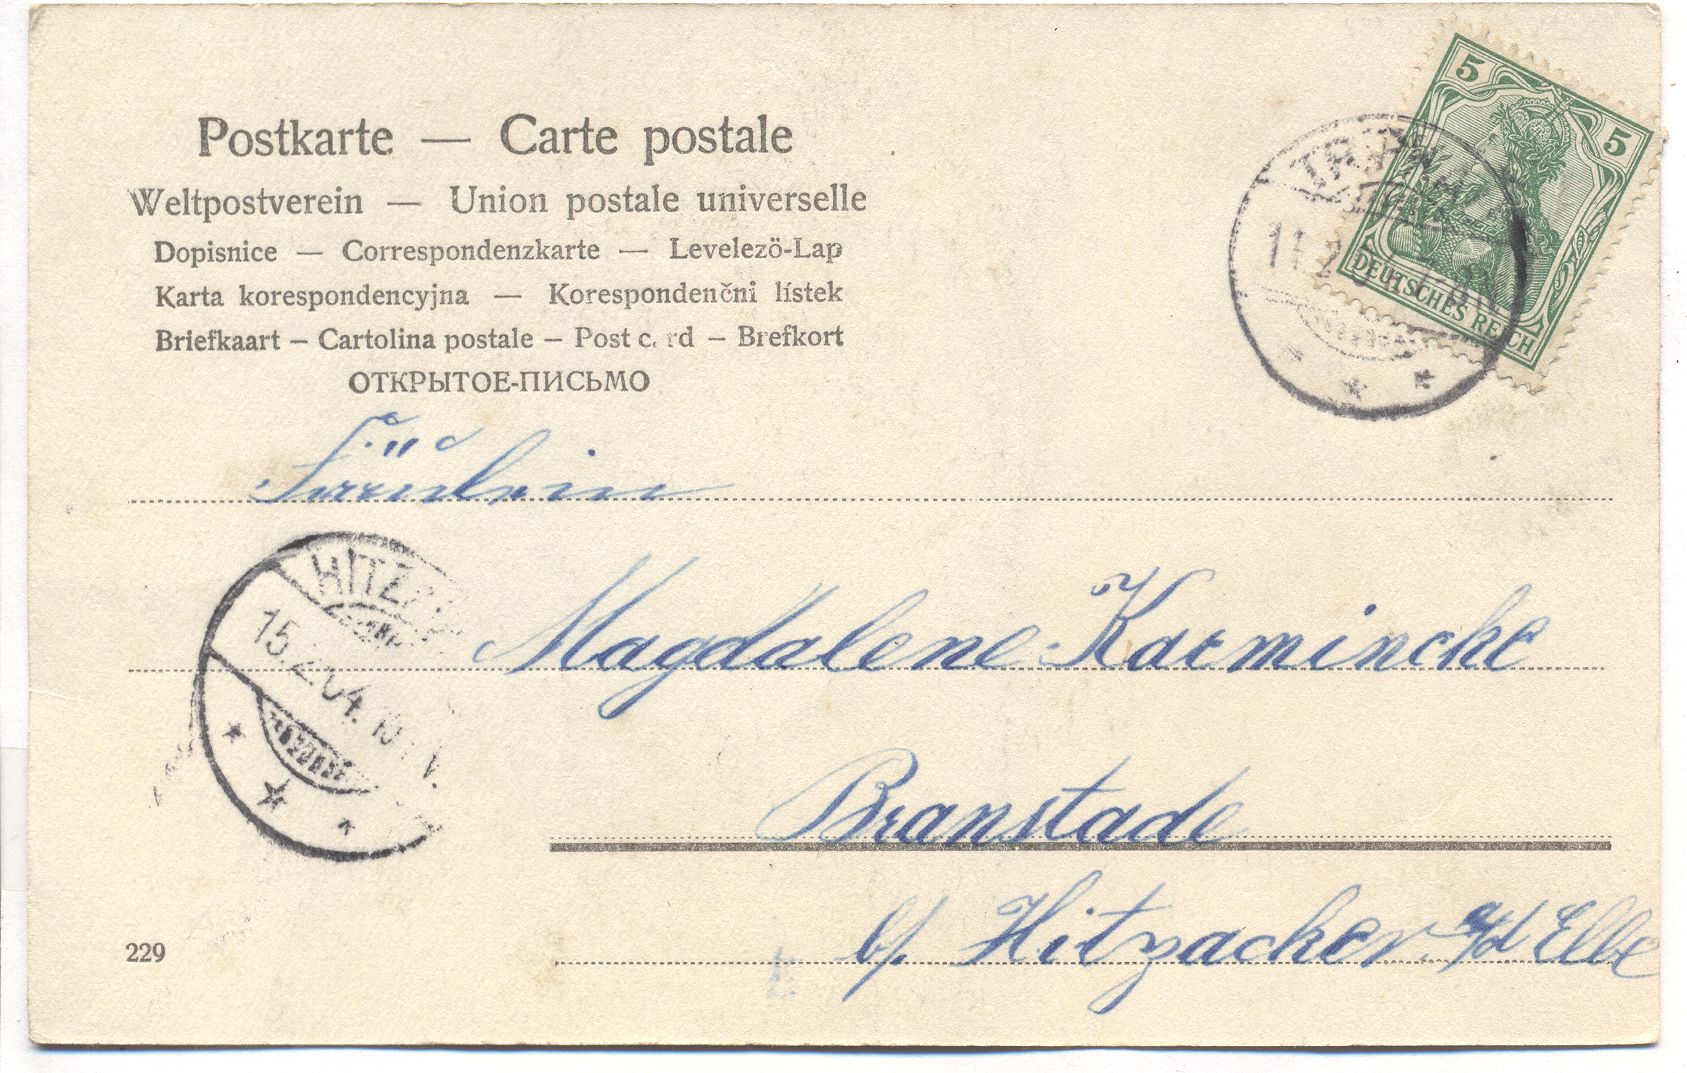 Postkarte — Carte postale
Weltpostverein — Union postale universelle
Dopisnice — Correspondenzkarte — Levelezö-Lap
Karta korespondencyjna — Korespondenčni lístek
Briefkaart – Cartolina postale – Post c rd – Brefkort
ОТКРЫТОЕ-ПИСЬМО
5 5
DEUTSCHES REICH
Fräulein
HITZA
15.2.04.
Magdalene Karmincke
Branstade
b/. Hitzacker a/d Elbe
229